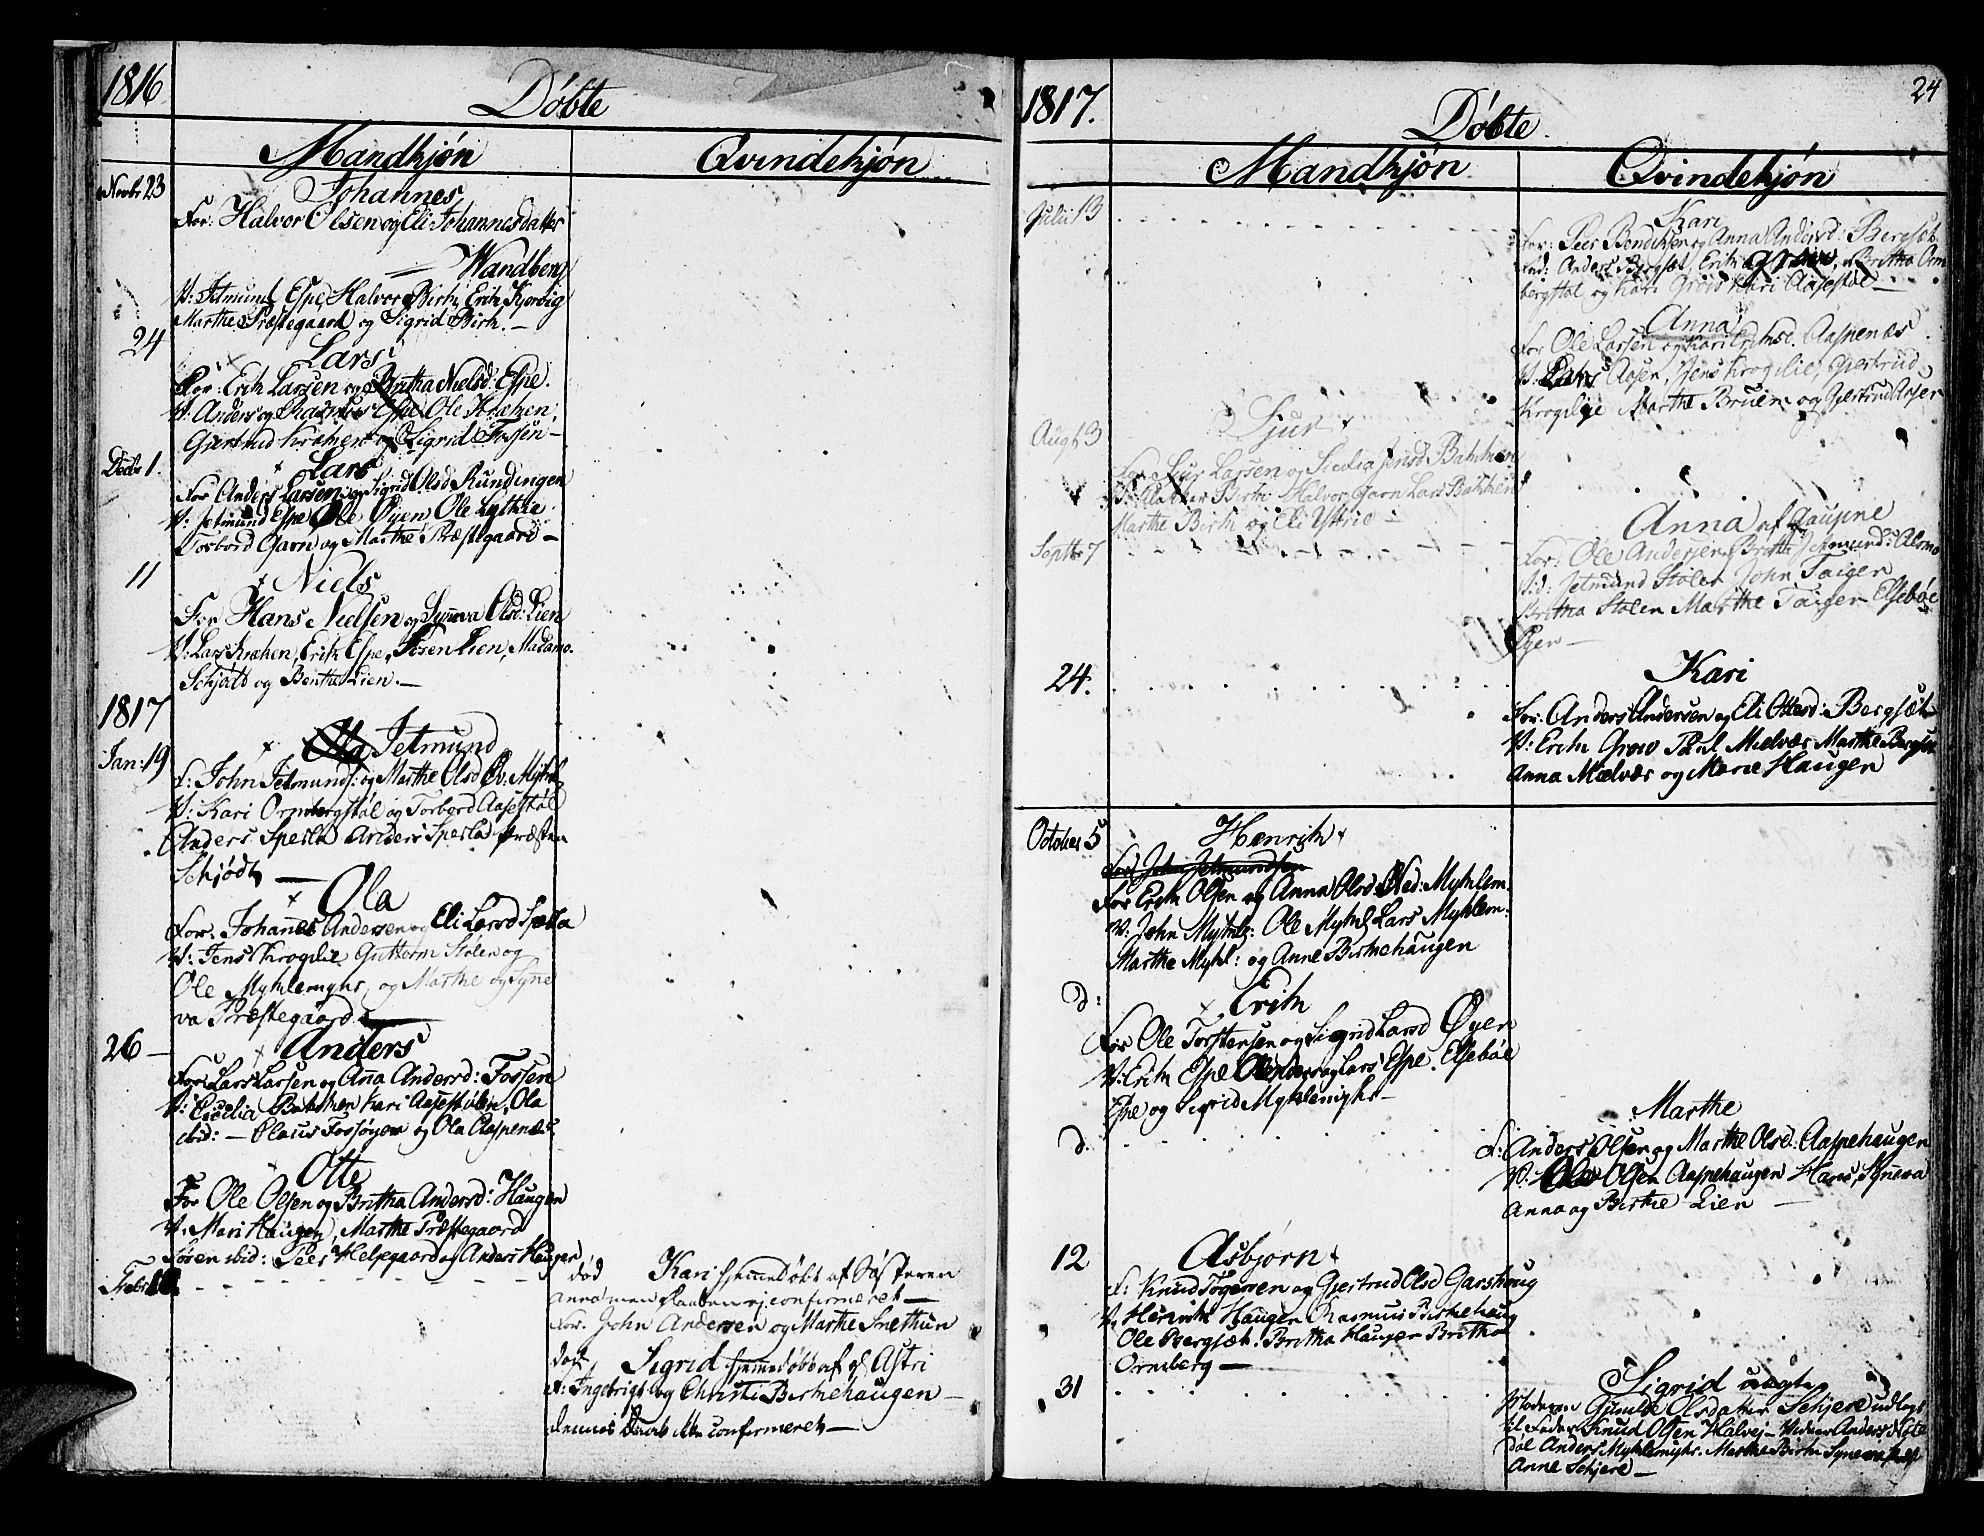 1816
Döbte
Mandkjön
Qvindekjön
Novbr 23
Johannes
For: Halvor Olsen og Eli Johannesdatter
Wandberg
V: Jetmund Espe, Halvor Birk, Erik Kjervig
Marthe Præstegaard og Sigrid Birk. —
24
Lars
For: Erik Larsen og Britha Nielsd: Espe.
V: Anders og Espe Ole Kræken,
Gjertrud Kræken og Sigrid Fossen —
Decbr 1.
Lars
For Anders Larsen og Sigrid Olsd Rundingen
V: Jetmund Espe Ole Øyen Ole Lykkie
Torbord Garn og Marthe Præstegaard —
11
Niels
For Hans Nielsen og Synneva Olsd: Lien
V: Lars Kræken, Erik Espe, Lien, Madame
Schjöth og Benthe Lien. —
1817
Jan: 19
Ola Jetmund
F: John Jetmunds: og Marthe Olsd Öv. Myhl
V: Kari Ormbergstöl og Torbord Aasestöl
Anders Spesla Anders Speslad Præsten
Schjödt —
Ola
For: Johannes Andersen og Eli Larsd Spesla
V: Jens Krogelie Guttorm Stolen og
Ole Myklemyhr, og Marthe og Synne
va Præstegaard. —
26 —
Anders
For: Lars Larsen og Anna Andersd: Fossen
V: Cicilia Bakken Kari Aasestölen, Ola
ibid: — Olaus Fossöyen og Ola Aaspenæs.
Otte
For Ole Olsen og Britha Andersd: Haugen
V: Mari Haugen, Marthe Præstegaard
Sören ibid: Peer Helgegaard og Anders Haugen
Febr
död
Kari hjemmedöbt af Sösteren
Anna men Daaben ej confirmeret —
For: John Andersen og Marthe Snethun
död
Sigrid hjemmedöbt af gl Astri
F: Ingebrigt og Christi Birkehaugen —
dennes Daab ikke confirmeret —
1817.
24
Döbte.
Mandkjön
Qvindekjön
Julii 13
Kari
For: Peer Bendiksen og Anna Andersd: Bergsæt
Fad: Anders Bergsæt Erik Britha Orm
bergstöl og Kari Grow Kari Aasestöl —
Anna
For Ole Larsen og Kari Eriksd. Aaspenæs
V: Lars Aasen, Jens Krogelie, Gjertrud
Krogelije Marthe Bruem og Gjertrud Aasen
Aug 13
Sjur
For Sjur Larsen og Sicilia Jensd Bakken
V: Birk Halvor Garn Lars Bakken
Marthe Birk og Eli Yttrie —
Septbr 7
Anna af Gaupne
For: Ole Andersen Britta Jetmund: Alsmo
Fad: Jetmund Stolen John Taiger
Britha Stolen Marthe Taiger Elseböe
Öyer —
24.
Kari
For: Anders Andersen og Eli Ottesd: Bergsæt
V: Erik Grow Paul Mielvær Marthe Bergsæt
Anna Mielvær og Marie Haugen
October 5
Henrik
For John Jetmundsen
For Erik Olsen og Anna Olsd: Ned: Myklem.
V: John Myhl: Ole Myhl Lars Myklem.
Marthe Myhl: og Anne Birkehaugen
d:
Erik
For Ole Torstensen og Sigrid Larsd Øyer
V: Erik Espe og Lars Espe. Elseböe
Espe og Sigrid Myklemyhr —
d.
Marthe
F: Anders Olsen og Marthe Olsd: Aaspehaugen
V: Ola Olsen Aaspehaugen Hans, Synneva
Anna og Birthe Lien —
12
Asbjörn
F: Knud Togersen og Gjertrud Olsd Garshoug
V: Henrik Haugen Rasmus Birkehaug
Ole Bergsæt. Britha Haugen Britha
Ormberg —
31
Sigrid uægte
Moderen Olsdatter Schjere udlagt
til Fader Knud Olsen Halvej — Vidner Anders
döl Anders Myklemyhr. Marthe Birk Synneva
Anne Schjere —